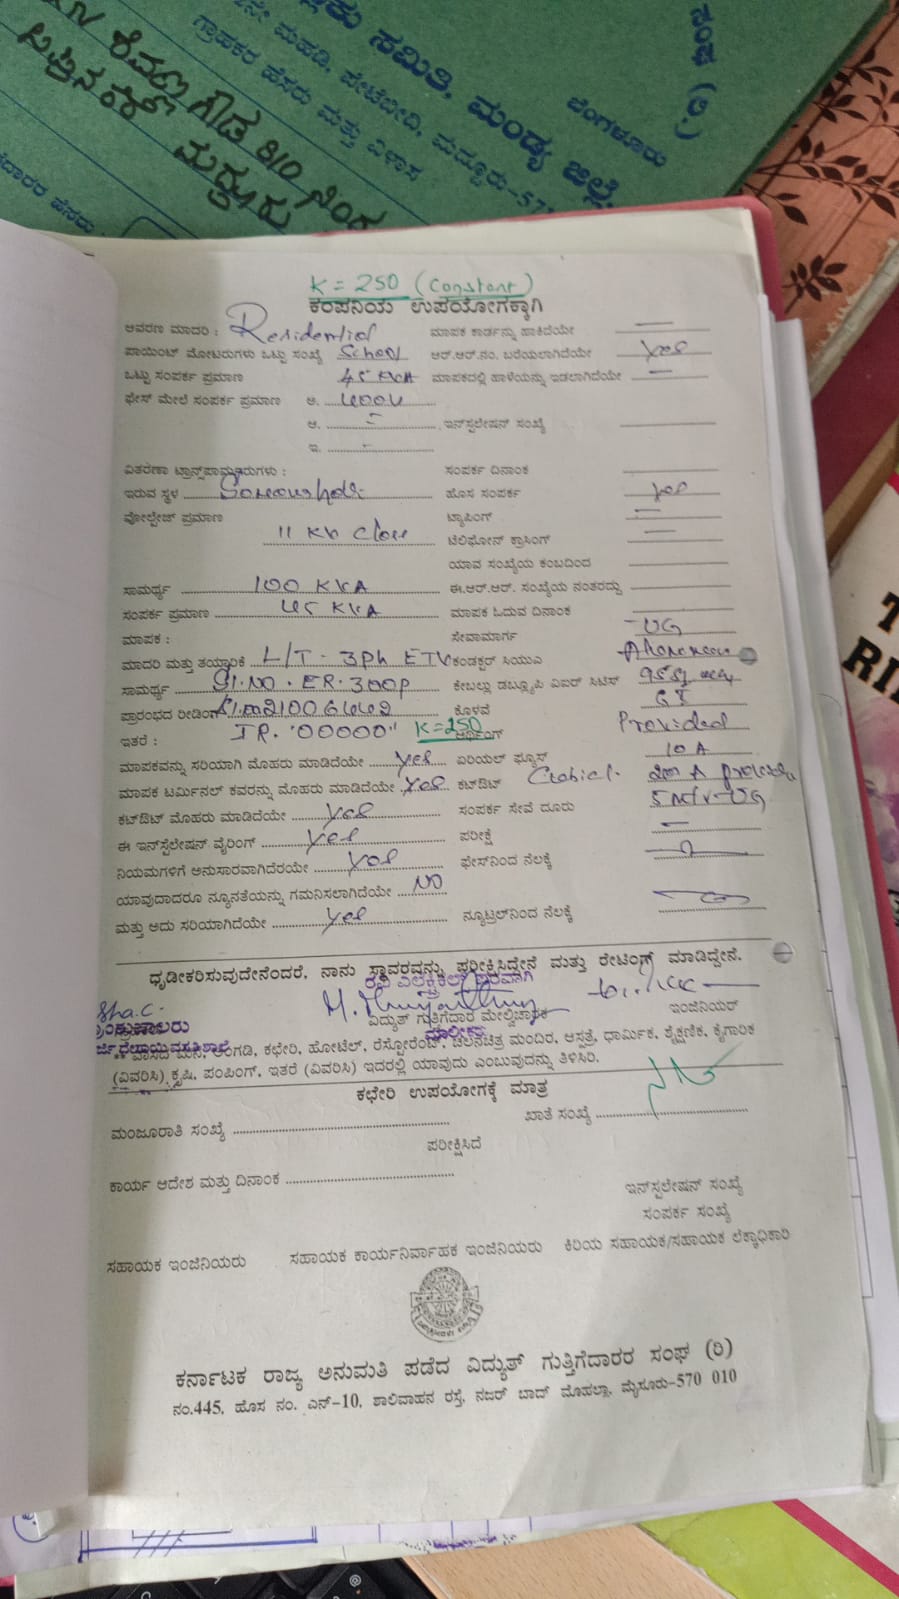 ಸಮಿತಿ, ಮಂಡ್ಯ ಜಿಲ್ಲೆ
ಮಹಡಿ, ಪೇಟೆಬೀದಿ, ಮದ್ದೂರು-571
ಗ್ರಾಹಕರ ಹೆಸರು ಮತ್ತು ವಿಳಾಸ
ಬೆಂಗಳೂರು
ಮದ್ದೂರು
K = 250 (Constant)
ಕಂಪನಿಯ ಉಪಯೋಗಕ್ಕಾಗಿ
ಆವರಣ ಮಾದರಿ : Residential ಮಾಪಕ ಕಾರ್ಡನ್ನು ಹಾಕಿದೆಯೇ —
ಪಾಯಿಂಟ್ ಮೋಟರುಗಳು ಒಟ್ಟು ಸಂಖ್ಯೆ School ಆರ್.ಆರ್.ನಂ. ಬರೆಯಲಾಗಿದೆಯೇ Yes
ಒಟ್ಟು ಸಂಪರ್ಕ ಪ್ರಮಾಣ 45 KVA ಮಾಪಕದಲ್ಲಿ ಹಾಳೆಯನ್ನು ಇಡಲಾಗಿದೆಯೇ —
ಫೇಸ್ ಮೇಲೆ ಸಂಪರ್ಕ ಪ್ರಮಾಣ ಅ. 400V
ಆ. – ಇನ್‌ಸ್ಟಲೇಷನ್ ಸಂಖ್ಯೆ
ಇ. -
ವಿತರಣಾ ಟ್ರಾನ್ಸ್‌ಫಾರ್ಮರುಗಳು : ಸಂಪರ್ಕ ದಿನಾಂಕ
ಇರುವ ಸ್ಥಳ ಹೊಸ ಸಂಪರ್ಕ Yes
ವೋಲ್ಟೇಜ್ ಪ್ರಮಾಣ ಟ್ಯಾಪಿಂಗ್ —
11 KV ಟೆಲಿಫೋನ್ ಕ್ರಾಸಿಂಗ್ —
ಯಾವ ಸಂಖ್ಯೆಯ ಕಂಬದಿಂದ
ಸಾಮರ್ಥ್ಯ 100 KVA ಈ.ಆರ್.ಆರ್. ಸಂಖ್ಯೆಯ ನಂತರದ್ದು
ಸಂಪರ್ಕ ಪ್ರಮಾಣ 45 KVA ಮಾಪಕ ಓದುವ ದಿನಾಂಕ
ಮಾಪಕ : ಸೇವಾಮಾರ್ಗ UG
ಮಾದರಿ ಮತ್ತು ತಯ್ಯಾರಿಕೆ L/T - 3Ph ETV ಕಂಡಕ್ಟರ್ ಸಿಯುಎ
ಸಾಮರ್ಥ್ಯ Sl.No. ER.300P ಕೇಬಲ್ಲು ಡಬ್ಲ್ಯೂಪಿ ಎಐರ್ ಸಿಟಿಸ್ 95
ಪ್ರಾರಂಭದ ರೀಡಿಂಗ್ ಕೊಳವೆ GI
ಇತರೆ : IR. "00000" K=250 ಅರ್ಥಿಂಗ್ Provided
ಮಾಪಕವನ್ನು ಸರಿಯಾಗಿ ಮೊಹರು ಮಾಡಿದೆಯೇ Yes ಏರಿಯಲ್ ಫ್ಯೂಸ್ 10 A
ಮಾಪಕ ಟರ್ಮಿನಲ್ ಕವರನ್ನು ಮೊಹರು ಮಾಡಿದೆಯೇ Yes ಕಟ್‌ಔಟ್ 200 A
ಕಟ್‌ಔಟ್ ಮೊಹರು ಮಾಡಿದೆಯೇ Yes ಸಂಪರ್ಕ ಸೇವೆ ದೂರು
ಈ ಇನ್‌ಸ್ಟಲೇಷನ್ ವೈರಿಂಗ್ Yes ಪರೀಕ್ಷೆ —
ನಿಯಮಗಳಿಗೆ ಅನುಸಾರವಾಗಿದೆರಯೇ Yes ಫೇಸ್‌ನಿಂದ ನೆಲಕ್ಕೆ
ಯಾವುದಾದರೂ ನ್ಯೂನತೆಯನ್ನು ಗಮನಿಸಲಾಗಿದೆಯೇ NO
ಮತ್ತು ಅದು ಸರಿಯಾಗಿದೆಯೇ Yes ನ್ಯೂಟ್ರಲ್‌ನಿಂದ ನೆಲಕ್ಕೆ
ಧೃಡೀಕರಿಸುವುದೇನೆಂದರೆ, ನಾನು ಸ್ಥಾವರವನ್ನು ಪರೀಕ್ಷಿಸಿದ್ದೇನೆ ಮತ್ತು ರೇಟಿಂಗ್ ಮಾಡಿದ್ದೇನೆ.
ವಿದ್ಯುತ್ ಗುತ್ತಿಗೆದಾರ ಮೇಲ್ವಿಚಾರಕ ಇಂಜಿನಿಯರ್
ಮಾಲೀಕ
ಅಂಗಡಿ, ಕಛೇರಿ, ಹೋಟೆಲ್, ರೆಸ್ಟೋರೆಂಟ್, ಚಲನಚಿತ್ರ ಮಂದಿರ, ಆಸ್ಪತ್ರೆ, ಧಾರ್ಮಿಕ, ಶೈಕ್ಷಣಿಕ, ಕೈಗಾರಿಕ
(ವಿವರಿಸಿ) ಕೃಷಿ, ಪಂಪಿಂಗ್, ಇತರೆ (ವಿವರಿಸಿ) ಇದರಲ್ಲಿ ಯಾವುದು ಎಂಬುವುದನ್ನು ತಿಳಿಸಿರಿ.
ಕಛೇರಿ ಉಪಯೋಗಕ್ಕೆ ಮಾತ್ರ
ಮಂಜೂರಾತಿ ಸಂಖ್ಯೆ ಖಾತೆ ಸಂಖ್ಯೆ
ಪರೀಕ್ಷಿಸಿದೆ
ಕಾರ್ಯ ಆದೇಶ ಮತ್ತು ದಿನಾಂಕ
ಇನ್‌ಸ್ಟಲೇಷನ್ ಸಂಖ್ಯೆ
ಸಂಪರ್ಕ ಸಂಖ್ಯೆ
ಸಹಾಯಕ ಇಂಜಿನಿಯರು ಸಹಾಯಕ ಕಾರ್ಯನಿರ್ವಾಹಕ ಇಂಜಿನಿಯರು ಕಿರಿಯ ಸಹಾಯಕ/ಸಹಾಯಕ ಲೆಕ್ಕಾಧಿಕಾರಿ
ಕರ್ನಾಟಕ ರಾಜ್ಯ ಅನುಮತಿ ಪಡೆದ ವಿದ್ಯುತ್ ಗುತ್ತಿಗೆದಾರರ ಸಂಘ (ರಿ)
ನಂ.445, ಹೊಸ ನಂ. ಎನ್-10, ಶಾಲಿವಾಹನ ರಸ್ತೆ, ನಜರ್ ಬಾದ್ ಮೊಹಲ್ಲಾ, ಮೈಸೂರು-570 010